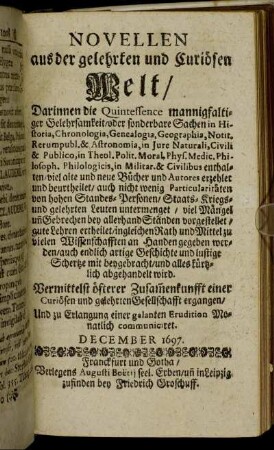 NOVELLEN
aus der gelehrten und Curiösen
Welt/
Darinnen die Quintessence mannigfalti-
ger Gelehrsamkeit/oder sonderbare Sachen in Hi-
storia, Chronologia, Genealogia, Geographia, Notit.
Rerumpubl. & Astronomia, in Jure Naturali, Civili
& Publico, in Theol. Polit. Moral. Phys. Medic. Phi-
losoph. Philologicis, in Militar. & Civilibus enthal-
ten/viel alte und neue Bücher und Autores erzehlet
und beurtheilet/ auch nicht wenig Particularitäten
von hohen Standes-Personen/ Staats-Kriegs-
und gelehrten Leuten untermenget / viel Mängel
uñ Gebrechen bey allerhand Ständen vorgestellet/
gute Lehren ertheilet/ingleichen Rath und Mittel zu
vielen Wissenschafften an Handen gegeben wer-
den/auch endlich artige Geschichte und lustige
Schertze mit beygebracht/und alles kürtz-
lich abgehandelt wird.
Vermittelst öfterer Zusamenkunfft einer
Curiösen und gelehrten Gesellschafft ergangen/
Und zu Erlangung einer galanten Erudition Mo-
natlich communiciret.
DECEMBER 1697.
Franckfurt und Gotha/
Verlegens Augusti Boetii seel. Erben/uñ in Leipzig
zufinden bey Friedrich Groschuff.